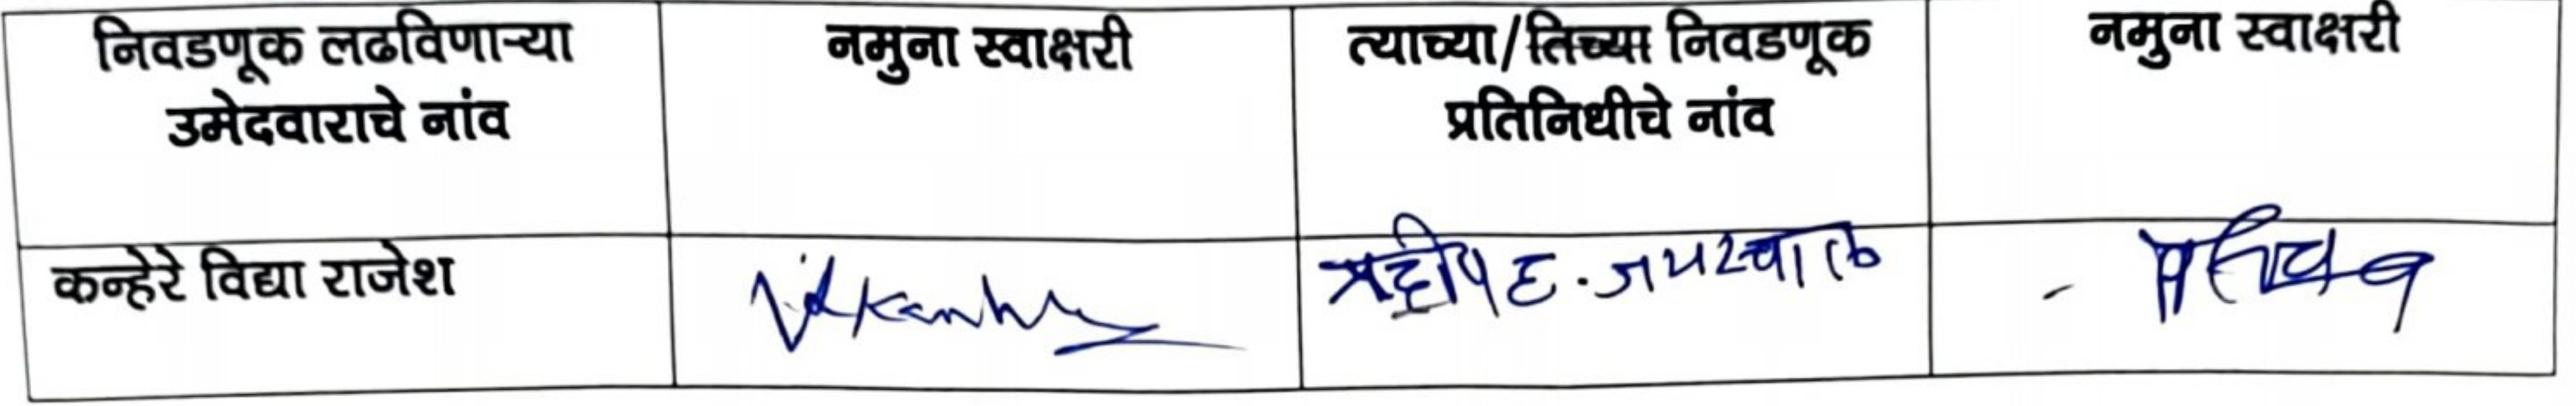 निवडणूक लढविणाऱ्या
उमेदवाराचे नांव
नमुना स्वाक्षरी
त्याच्या/तिच्या निवडणूक
प्रतिनिधीचे नांव
नमुना स्वाक्षरी
कन्हेरे विद्या राजेश
प्रदीप ह. जयस्वाल